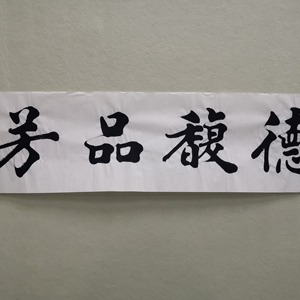 德馥品芳